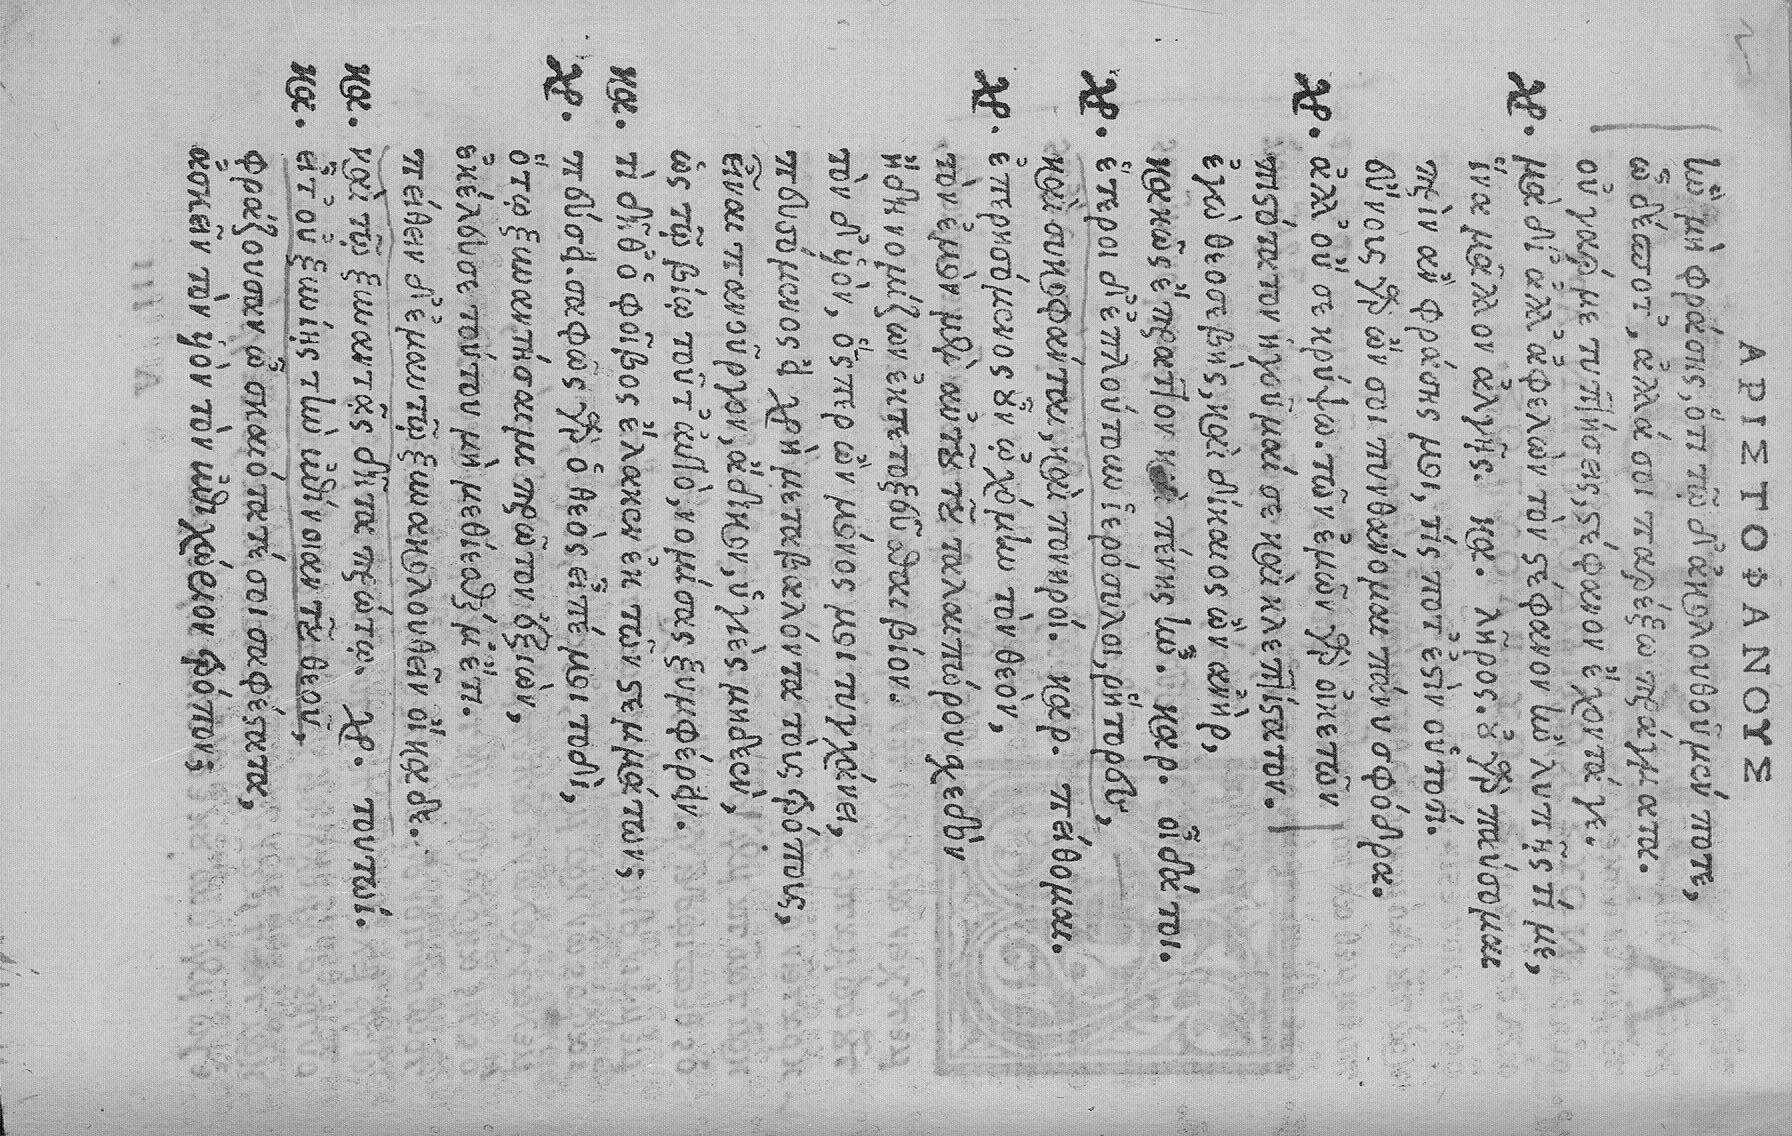 ΑΡΙΣΤΟΦΑΝΟΥΣ
ἢν μὴ φράσῃς, ὅτι τῷ δ᾽ ἀκολουθοῦμέν ποτε,
ὦ δέσποτ᾽, ἀλλά σοι παρέξω πράγματα.
οὐ γάρ με τυπτήσεις, στέφανον ἔχοντά γε.
Χρ. μὰ δί᾽ ἀλλ᾽ ἀφελὼν τὸν στέφανον ἢν λυπῇς τί με,
ἵνα μᾶλλον ἀλγῇς. κα. λῆρος. οὐ γὰρ παύσομαι
πρὶν ἂν φράσῃς μοι, τίς ποτ᾽ ἐστὶν οὑτοσί.
εὔνους γὰρ ὤν σοι πυνθάνομαι πάνυ σφόδρα.
Χρ. ἀλλ᾽ οὔ σε κρύψω. τῶν ἐμῶν γὰρ οἰκετῶν
πιστότατον ἡγοῦμαί σε καὶ κλεπτίστατον.
ἐγὼ θεοσεβὴς, καὶ δίκαιος ὢν ἀνὴρ,
κακῶς ἔπραττον καὶ πένης ἦν. καρ. οἶδά τοι.
Χρ. ἕτεροι δ᾽ ἐπλούτουν ἱερόσυλοι, ῥήτορες,
καὶ συκοφάνται, καὶ πονηροί. καρ. πείθομαι.
Χρ. ἐπερησόμενος οὖν ᾠχόμην τὸν θεὸν,
τὸν ἐμὸν μὲν αὐτοῦ τοῦ ταλαιπώρου σχεδὸν
ἤδη νομίζων ἐκτετοξεῦσθαι βίον.
τὸν δ᾽ υἱὸν, ὅσπερ ὢν μόνος μοι τυγχάνει,
πευσόμενος εἰ χρὴ μεταβαλόντα τοὺς τρόπους,
εἶναι πανοῦργον, ἄδικον, ὑγιὲς μηδεέν,
ὡς τῷ βίῳ τοῦτ᾽ αὐτὸ, νομίσας ξυμφέρειν.
κα. τί δῆθ᾽ ὁ φοῖβος ἔλακεν ἐκ τῶν στεμμάτων;
Χρ. πεύσει. σαφῶς γὰρ ὁ θεὸς εἶπέ μοι τοδὶ,
ὅτῳ ξυναντήσαιμι πρῶτον ἐξιὼν,
ἐκέλευσε τούτου μὴ μεθίεσθαί μ᾽ ἔτι.
πείθειν δ᾽ ἐμαυτῷ ξυνακολουθεῖν οἴκαδε.
κα. καὶ τῷ ξυναντᾷς δῆτα πρώτῳ. Χρ. τουτωί.
κα. εἶτ᾽ οὐ ξυνίης τὴν ἐπίνοιαν τοῦ θεοῦ,
φράζουσαν ὦ σκαιότατέ σοι σαφέστατα,
ἀσκεῖν τὸν υἱὸν τὸν ἐπιχώριον τρόπον;